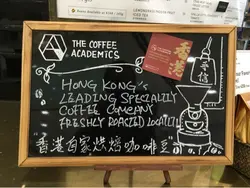 THE COFFEE
ACADEMICS
香港
HONG KONG'S
LEADING SPECIALTY
COFFEE COMPANY
FRESHLY ROASTED LOCALLY!
"香港百家烘焙咖啡豆"